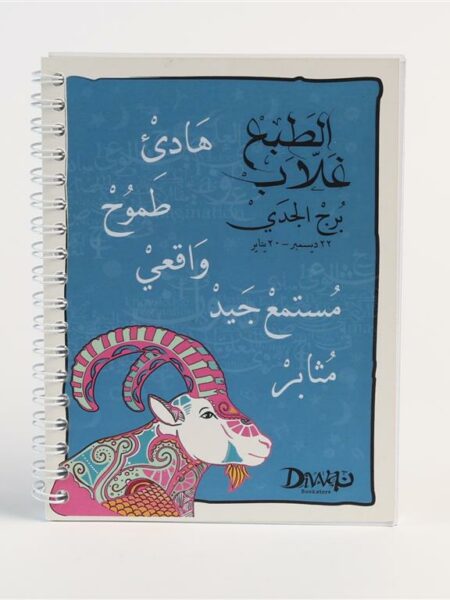 الطَبع
غَلّاب
بُرج الجَدَيْ
٢٢ ديسمبر - ٢٠ يناير
هَادئْ
طَموُحْ
وَاقعيْ
مُستمعْ جَيدْ
مُثابرْ
DiVAN
Bookstore